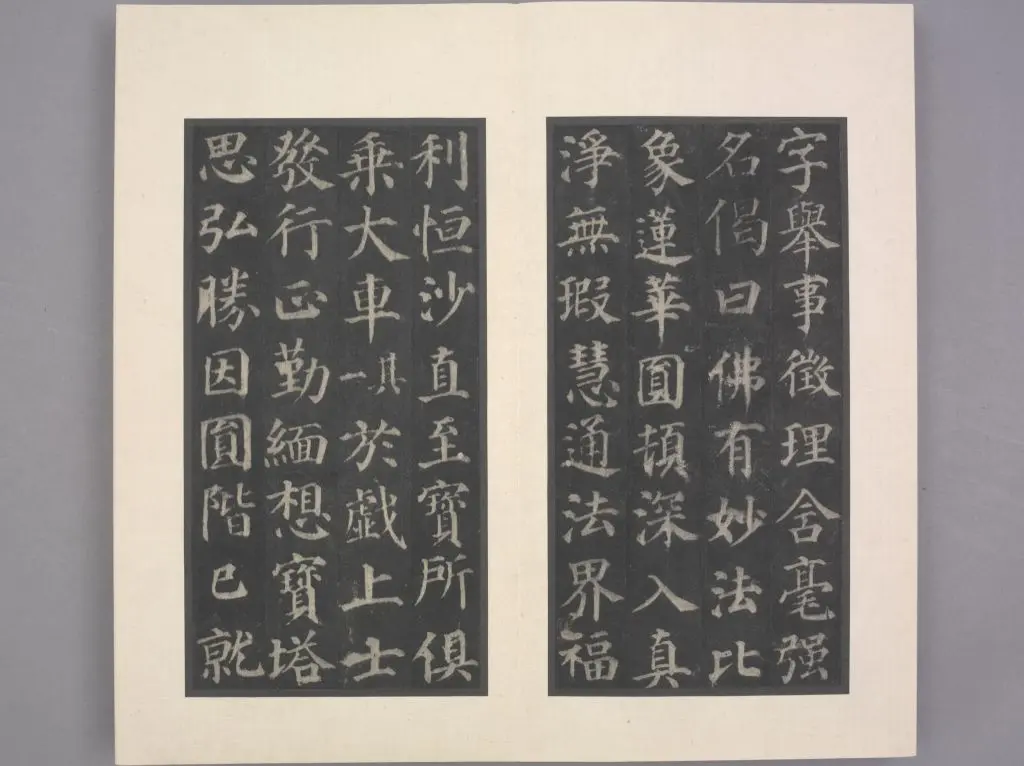 字舉事徵理含毫强
名偈曰佛有妙法比
象蓮華圓頓深入真
淨無瑕慧通法界福
利恒沙直至寶所俱
乗大車其一於戲上士
發行正勤緬想寶塔
思弘勝因圓階已就